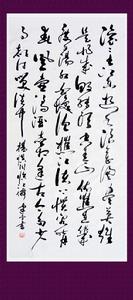 滚滚长江东逝水浪花淘尽英雄
是非成败转头空青山依旧在几
度夕阳红白发渔樵江渚上惯看秋月
春风一壶浊酒喜相逢古今多少
事都付笑谈中 杨慎临江仙 书